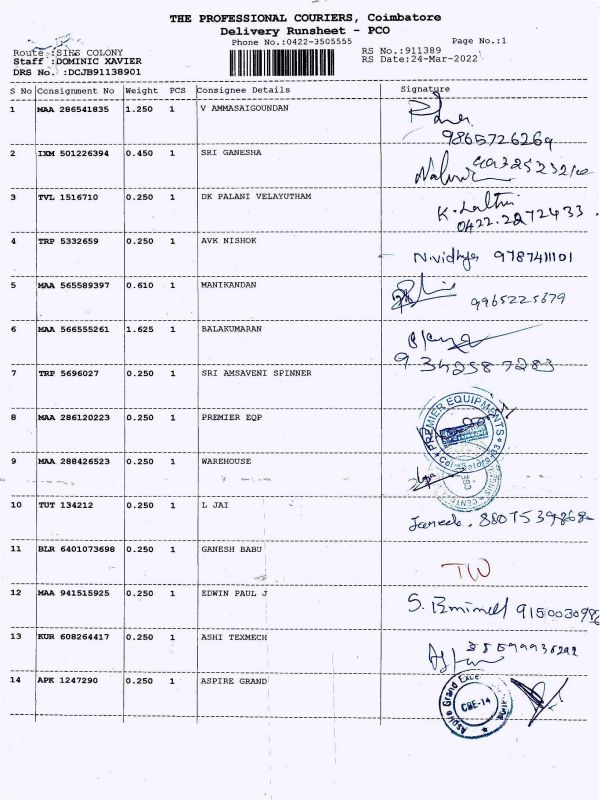 THE PROFESSIONAL COURIERS, Coimbatore
Delivery Runsheet - PCO
Phone No.:0422-3505555
Page No.:1
Route :SIHS COLONY
RS No.:911389
Staff :DOMINIC XAVIER
RS Date:24-Mar-2022
DRS No. :DCJB91138901
S No Consignment No Weight PCS Consignee Details Signature
1 MAA 286541835 1.250 1 V AMMASAIGOUNDAN
9865726269
2 IXM 501226394 0.450 1 SRI GANESHA
3 TVL 1516710 0.250 1 DK PALANI VELAYUTHAM
K. Lalthi
0422.2272433
4 TRP 5332659 0.250 1 AVK NISHOK
N.vidhya 9787411101
5 MAA 565589397 0.610 1 MANIKANDAN
9965225679
6 MAA 566555261 1.625 1 BALAKUMARAN
7 TRP 5696027 0.250 1 SRI AMSAVENI SPINNER
8 MAA 286120223 0.250 1 PREMIER EQP
PREMIER EQUIPMENTS
9 MAA 288426523 0.250 1 WAREHOUSE
10 TUT 134212 0.250 1 L JAI
11 BLR 6401073698 0.250 1 GANESH BABU
TW
12 MAA 941515925 0.250 1 EDWIN PAUL J
13 KUR 608264417 0.250 1 ASHI TEXMECH
14 APK 1247290 0.250 1 ASPIRE GRAND
Aspire Grand
CBE-14